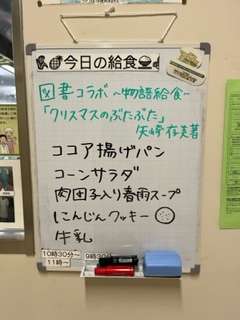 今日の給食
図書コラボ ~物語給食~
「クリスマスのぶたぶた」
矢崎存美著
ココア揚げパン
コーンサラダ
肉団子入り春雨スープ
にんじんクッキー
牛乳
10時30分~ 9時30
11時~